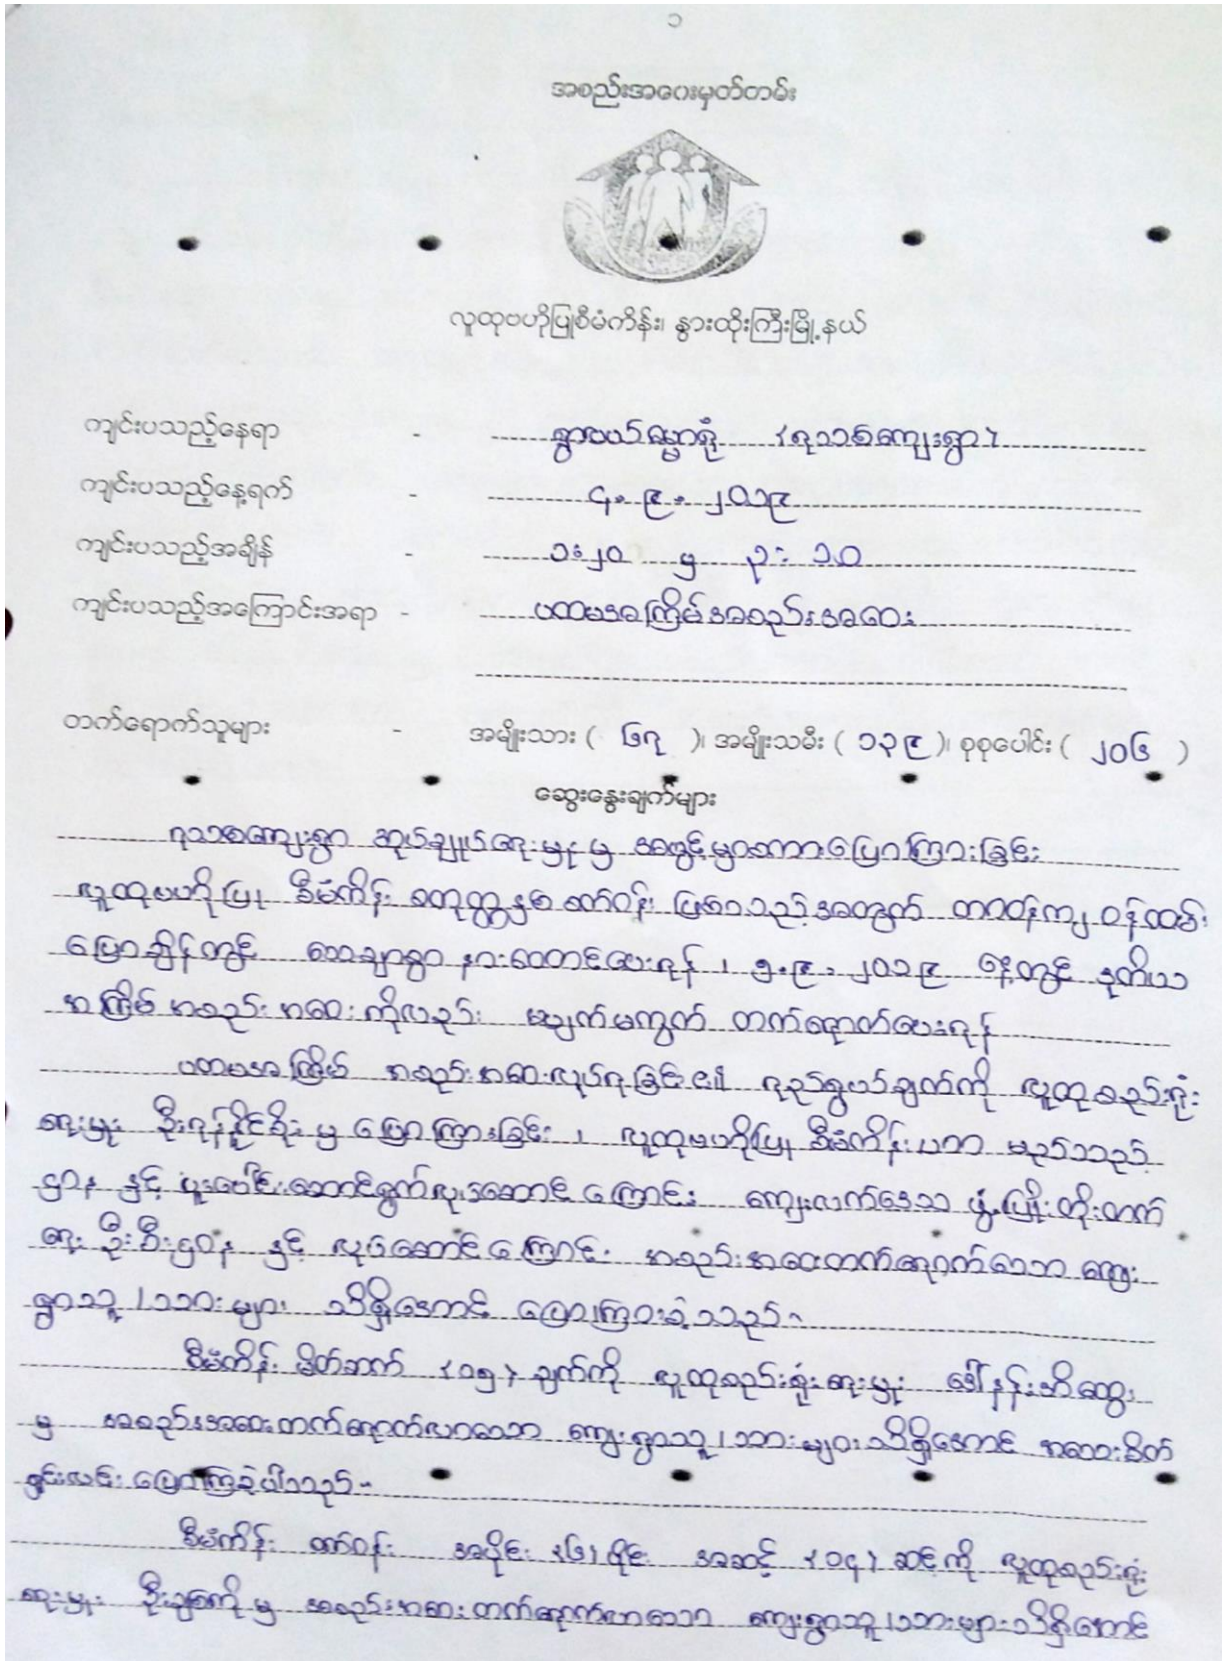 ၁
အစည်းအဝေးမှတ်တမ်း
လူထုဗဟိုပြုစီမံကိန်း၊ နွားထိုးကြီးမြို့နယ်
ကျင်းပသည့်နေရာ - ရွာလယ်ဓမ္မာရုံ (ရသစ်ကျေးရွာ)
ကျင်းပသည့်နေ့ရက် - ၄.၉.၂၀၁၉
ကျင်းပသည့်အချိန် - ၁:၂၀ မှ ၃:၁၀
ကျင်းပသည့်အကြောင်းအရာ - ပထမအကြိမ်အစည်းအဝေး
တက်ရောက်သူများ - အမျိုးသား ( ၆၇ )၊ အမျိုးသမီး ( ၁၃၉ )၊ စုစုပေါင်း ( ၂၀၆ )
ဆွေးနွေးချက်များ
ရသစ်ကျေးရွာ အုပ်ချုပ်ရေးမှူး မှ အဖွင့်မှာစကားပြောကြားခြင်း
လူထုဗဟိုပြု စီမံကိန်း စတုတ္ထနှစ် စက်ဝန်း ဖြစ်သည့်အတွက် တာဝန်ကျ ဝန်ထမ်း
ပြောချိန်တွင် သေချာစွာ နားထောင်ပေးရန်၊ ၅.၉.၂၀၁၉ နေ့တွင် ဒုတိယ
အကြိမ် အစည်းအဝေးကိုလည်း မပျက်မကွက် တက်ရောက်ပေးရန်
ပထမအကြိမ် အစည်းအဝေးလုပ်ရခြင်း၏ ရည်ရွယ်ချက်ကို လူထုစည်းရုံး
ရေးမှူး ဦးရန်နိုင်စိုး မှ ပြောကြားခြင်း၊ လူထုဗဟိုပြု စီမံကိန်းဟာ မည်သည့်
ဌာန နှင့် ပူးပေါင်းဆောင်ရွက်လုပ်ဆောင်ကြောင်း ကျေးလက်ဒေသ ဖွံ့ဖြိုးတိုးတက်
ရေး ဦးစီးဌာန နှင့် လုပ်ဆောင်ကြောင်း အစည်းအဝေးတက်ရောက်သော ကျေး
ရွာသူ/သားများ သိရှိအောင် ပြောကြားခဲ့သည်။
စီမံကိန်း မိတ်ဆက် (၁၅) ချက်ကို လူထုစည်းရုံးရေးမှူး ဒေါ်နန်းအိထွေး
မှ အစည်းအဝေးတက်ရောက်လာသော ကျေးရွာသူ/သားများ သိရှိအောင် အသေးစိတ်
ရှင်းလင်း ပြောကြားခဲ့ပါသည်။
စီမံကိန်း စက်ဝန်း အပိုင်း (၆) ပိုင်း အဆင့် (၁၄) ဆင့်ကို လူထုစည်းရုံး
ရေးမှူး ဦးချစ်ကို မှ အစည်းအဝေးတက်ရောက်လာသော ကျေးရွာသူ/သားများ သိရှိအောင်